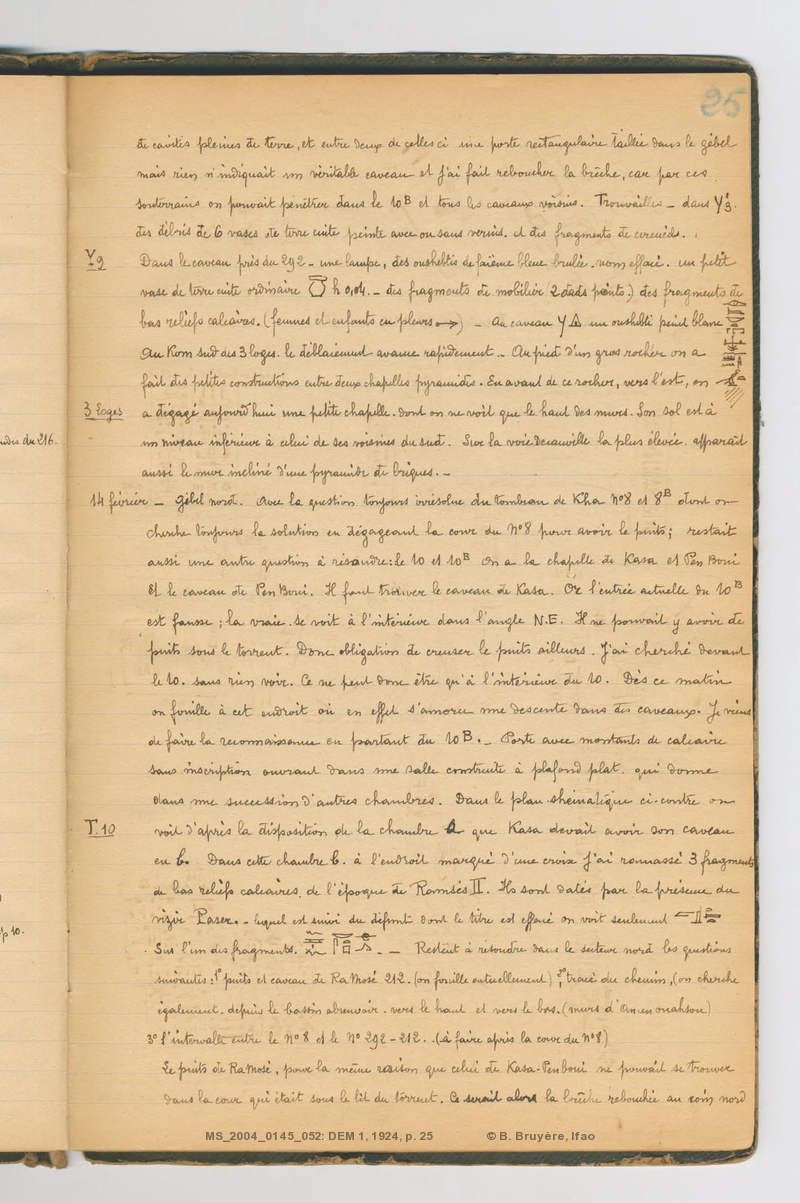 25
de cavités pleines de terre, et entre deux de celles ci une porte rectangulaire taillée dans le gébel
mais rien n'indiquait un véritable caveau et j'ai fait reboucher la brèche, car par ces
souterrains on pouvait pénétrer dans le 10 B et tous les caveaux voisins. Trouvailles _ dans Y 3.
des débris de 6 vases de terre cuite peinte avec ou sans vernis. et des fragments de cercueils.
Y 9 Dans le caveau près du 292 - une lampe, des oushebtis de faïence bleue brulée. nom effacé. un petit
vase de terre cuite ordinaire h 0,04. _ des fragments de mobilier (2 dads peints.) des fragments de
bas reliefs calcaires. (femmes et enfants en pleurs →) _ Au caveau Y un oushebti peint blanc
Au Kom sud des 3 loges. le déblaiement avance rapidement. _ Au pied d'un gros rocher on a
fait des petites constructions entre deux chapelles pyramides. En avant de ce rocher, vers l'est, on
3 loges a dégagé aujourd'hui une petite chapelle. dont on ne voit que le haut des murs. Son sol est à
un niveau inférieur à celui de ses voisines du sud. Sur la voie Decauville la plus élevée. apparait
aussi le mur incliné d'une pyramide de briques. _
14 février _ Gébel nord. Avec la question toujours irrésolue du tombeau de Kha N° 8 et 8 B dont on
cherche toujours la solution en dégageant la cour du N° 8 pour avoir le puits ; restait
aussi une autre question à résoudre : le 10 et 10 B On a la chapelle de Kasa et Pen Boui
Et le caveau de Pen Boui. Il faut trouver le caveau de Kasa. Or l'entrée actuelle du 10 B
est fausse ; la vraie se voit à l'intérieur dans l'angle N.E. Il ne pouvait y avoir de
puits sous le torrent. Donc obligation de creuser le puits ailleurs. J'ai cherché devant
le 10. sans rien voir. Ce ne peut donc être qu'à l'intérieur du 10. Dès ce matin
on fouille à cet endroit où en effet s'amorce une descente dans des caveaux. Je viens
de faire la reconnaissance en partant du 10 B. _ Porte avec montants de calcaire
sans inscription ouvrant dans une salle construite à plafond plat. qui donne
dans une succession d'autres chambres. Dans le plan shématique ci-contre on
T. 10 voit d'après la disposition de la chambre a que Kasa devait avoir son caveau
en b. Dans cette chambre b. à l'endroit marqué d'une croix j'ai ramassé 3 fragments
de bas reliefs calcaires de l'époque de Ramsès II. Ils sont datés par la présence du
vizir Paser. _ lequel est suivi du défunt dont le titre est effacé on voit seulement
Sur l'un des fragments. _ Restent à résoudre dans le secteur nord les questions
suivantes : 1° puits et caveau de Ra Mosé 212. (on fouille actuellement) 2° tracé du chemin, (on cherche
également. depuis le bassin abreuvoir. vers le haut et vers le bas. (murs d'Amenouahsou)
3° l'intervalle entre le N° 8 et le N° 292 - 212. (à faire après la cour du N° 8.)
Le puits de Ra Mosé, pour la même raison que celui de Kasa-Penboui ne pouvait se trouver
dans la cour qui était sous le lit du torrent. Ce serait alors la brèche rebouchée au coin nord
du 216.
p 10.
MS_2004_0145_052: DEM 1, 1924, p. 25 © B. Bruyère, Ifao